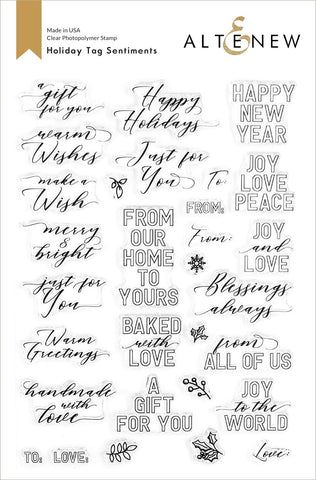 Made in USA
Clear Photopolymer Stamp
Holiday Tag Sentiments
ALTENEW
a
gift
for you
warm
Wishes
make a
Wish
merry
&
bright
just for
You
Warm
Greetings
handmade
with
love
TO:
LOVE:
Happy
Holidays
Just for
You
FROM
OUR
HOME
TO
YOURS
BAKED
with
LOVE
A
GIFT
FOR YOU
To:
FROM:
From:
HAPPY
NEW
YEAR
JOY
LOVE
PEACE
JOY
and
LOVE
Blessings
always
from
ALL OF US
JOY
to the
WORLD
Love: